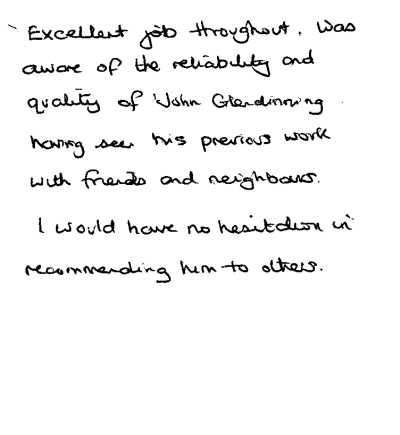 Excellent job throughout. Was
aware of the reliability and
quality of John Glendinning
having seen his previous work
with friends and neighbours.
I would have no hesitation in
recommending him to others.